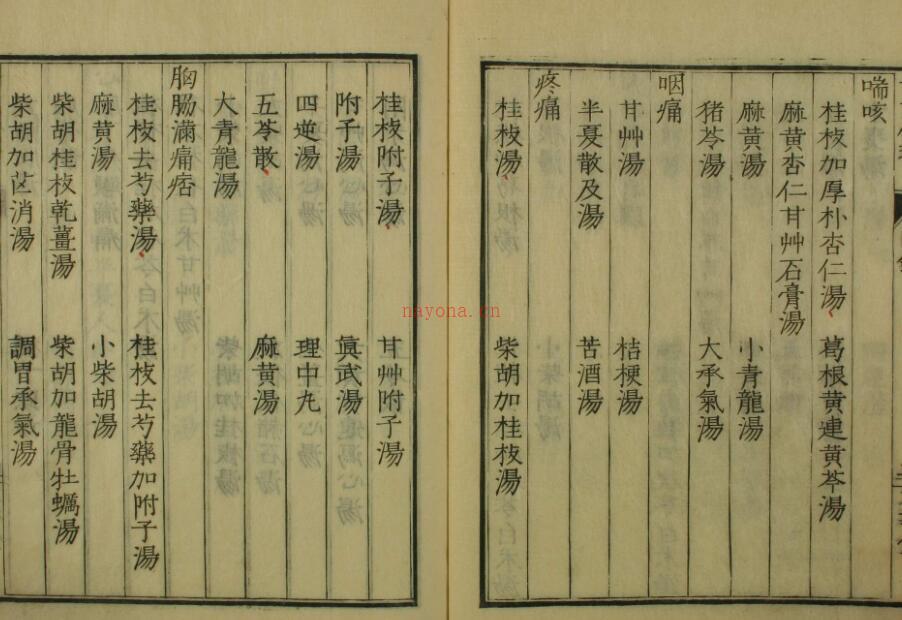 喘咳
桂枝加厚朴杏仁湯 葛根黃連黃芩湯
麻黃杏仁甘艸石膏湯
麻黃湯 小青龍湯
猪苓湯 大承氣湯
咽痛
甘艸湯 桔梗湯
半夏散及湯 苦酒湯
疼痛
桂枝湯 柴胡加桂枝湯
桂枝附子湯 甘艸附子湯
附子湯 眞武湯
四逆湯 理中丸
五苓散 麻黃湯
大青龍湯
胸脇滿痛痞
桂枝去芍藥湯 桂枝去芍藥加附子湯
麻黃湯 小柴胡湯
柴胡桂枝乾薑湯 柴胡加龍骨牡蠣湯
柴胡加芒消湯 調胃承氣湯
nayona.cn